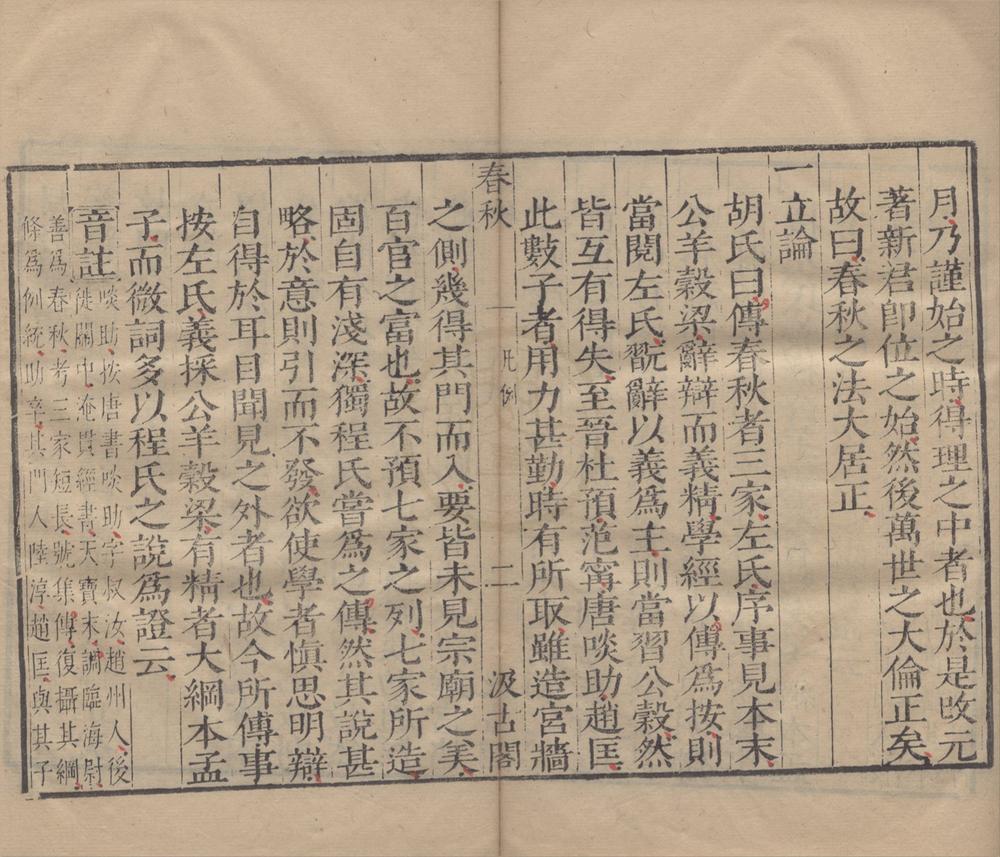 月乃謹始之時得理之中者也於是改元
著新君即位之始然後萬世之大倫正矣
故曰春秋之法大居正
一立論
胡氏曰傳春秋者三家左氏序事見本末
公羊穀梁辭辯而義精學經以傳爲按則
當閱左氏翫辭以義爲主則當習公穀然
皆互有得失至晉杜預范甯唐啖助趙匡
此數子者用力甚勤時有所取雖造宮牆
春秋 凡例 二 汲古閣
之側幾得其門而入要皆未見宗廟之美
百官之富也故不預七家之列七家所造
固自有淺深獨程氏嘗爲之傳然其說甚
略於意則引而不發欲使學者愼思明辯
自得於耳目聞見之外者也故今所傳事
按左氏義採公羊穀梁有精者大綱本孟
子而微詞多以程氏之說爲證云
音註 啖助按唐書啖助字叔汝趙州人後
徙關中淹貫經書天寶末調臨海尉
善爲春秋考三家短長號集傳復攝其綱
條爲例統助卒其門人陸淳趙匡與其子